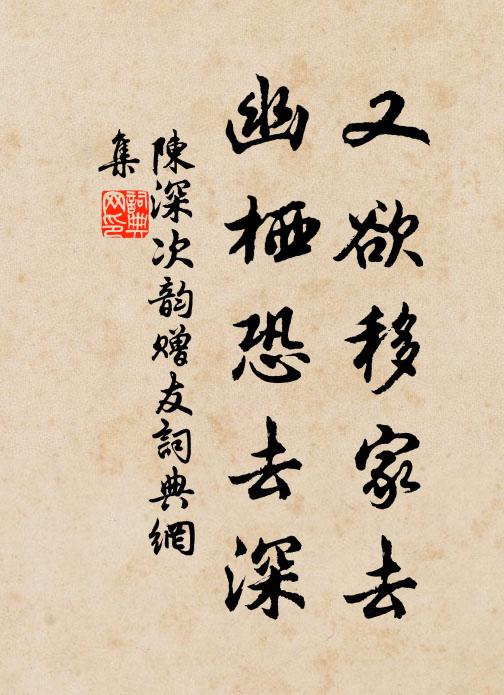 又欲移家去
幽栖恐去深
陳深次韵赠友詞典網
集
詞典
网印